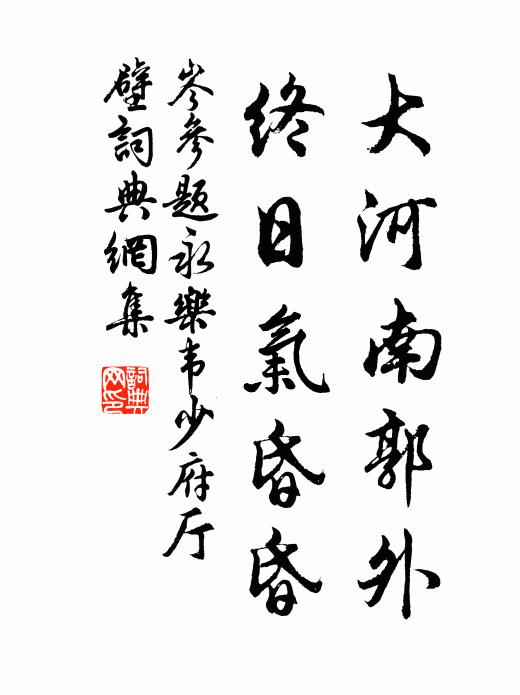 大河南郭外
終日氣昏昏
岑參题永樂韦少府厅
壁詞典網集
詞典网印